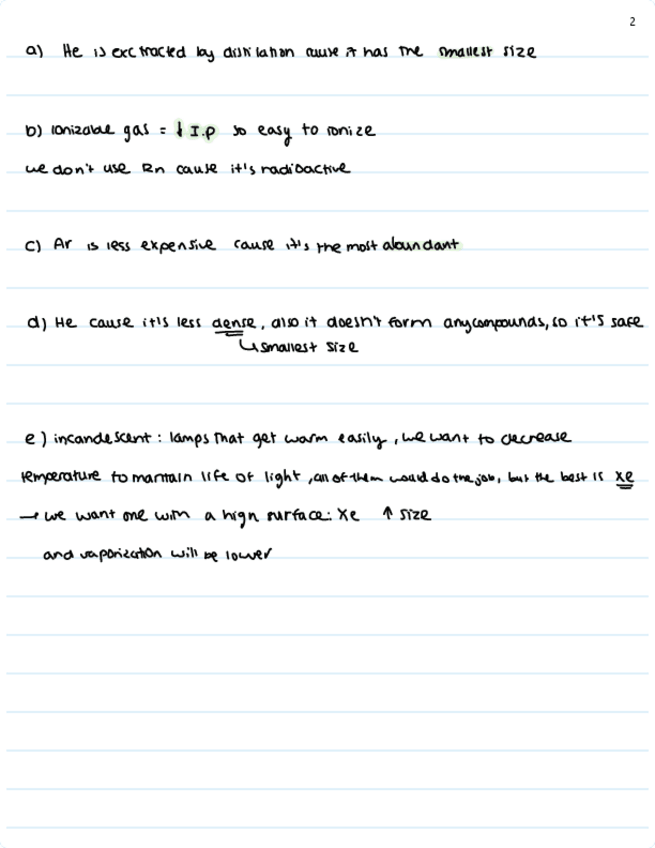 2
a) He is exctracted by distilation cause it has the smallest size
b) ionizable gas = ↓ I.p so easy to ionize
we don't use Rn cause it's radioactive
c) Ar is less expensive cause it's the most abundant
d) He cause it's less dense, also it doesn't form any compounds, so it's safe
↳ smallest size
e) incandescent : lamps that get warm easily, we want to decrease
temperature to mantain life of light, all of them would do the job, but the best is Xe
→ we want one with a high surface: Xe ↑ size
and vaporization will be lower